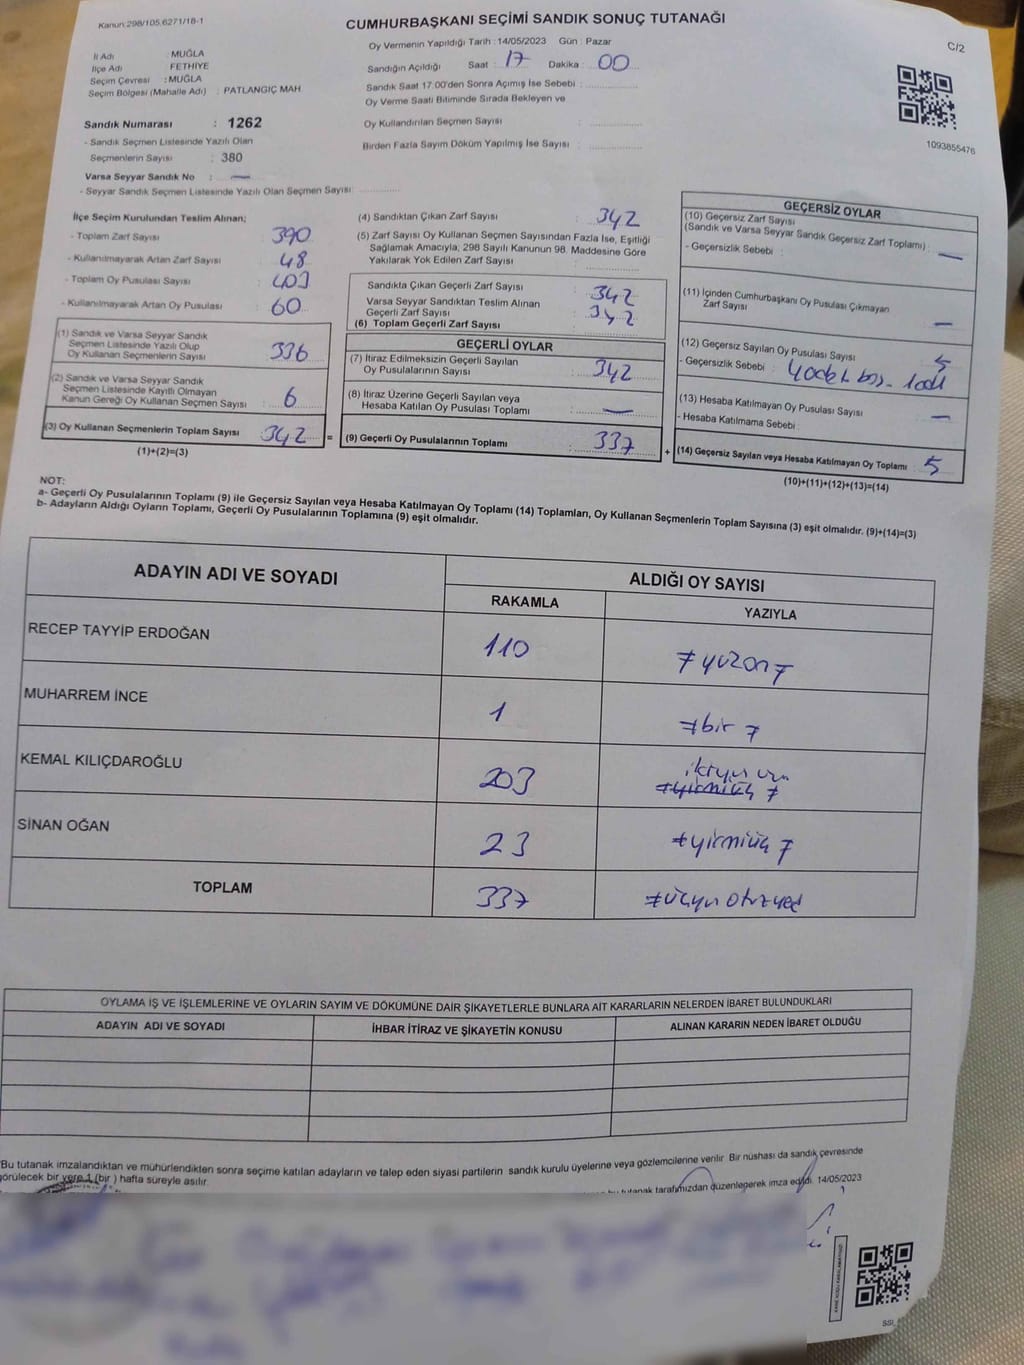 Kanun:298/105,6271/18-1
CUMHURBAŞKANI SEÇİMİ SANDIK SONUÇ TUTANAĞI
C/2
İl Adı : MUĞLA
İlçe Adı FETHİYE
Seçim Çevresi : MUĞLA
Seçim Bölgesi (Mahalle Adı) : PATLANGIÇ MAH.
Oy Vermenin Yapıldığı Tarih : 14/05/2023 Gün : Pazar
Sandığın Açıldığı Saat : 17 Dakika : 00
Sandık Saat 17.00'den Sonra Açımış İse Sebebi :
Oy Verme Saati Bitiminde Sırada Bekleyen ve
Oy Kullandırılan Seçmen Sayısı :
Birden Fazla Sayım Döküm Yapılmış İse Sayısı :
1093855476
Sandık Numarası : 1262
- Sandık Seçmen Listesinde Yazılı Olan
Seçmenlerin Sayısı : 380
Varsa Seyyar Sandık No : —
- Seyyar Sandık Seçmen Listesinde Yazılı Olan Seçmen Sayısı:
İlçe Seçim Kurulundan Teslim Alınan;
- Toplam Zarf Sayısı : 390
- Kullanılmayarak Artan Zarf Sayısı : 48
- Toplam Oy Pusulası Sayısı :
- Kullanılmayarak Artan Oy Pusulası : 60
(1) Sandık ve Varsa Seyyar Sandık
Seçmen Listesinde Yazılı Olup
Oy Kullanan Seçmenlerin Sayısı : 336
(2) Sandık ve Varsa Seyyar Sandık
Seçmen Listesinde Kayıtlı Olmayan
Kanun Gereği Oy Kullanan Seçmen Sayısı : 6
(3) Oy Kullanan Seçmenlerin Toplam Sayısı : 342
(1)+(2)=(3)
=
(4) Sandıktan Çıkan Zarf Sayısı : 342
(5) Zarf Sayısı Oy Kullanan Seçmen Sayısından Fazla İse, Eşitliği
Sağlamak Amacıyla; 298 Sayılı Kanunun 98. Maddesine Göre
Yakılarak Yok Edilen Zarf Sayısı :
Sandıkta Çıkan Geçerli Zarf Sayısı : 342
Varsa Seyyar Sandıktan Teslim Alınan
Geçerli Zarf Sayısı :
(6) Toplam Geçerli Zarf Sayısı : 342
GEÇERLİ OYLAR
(7) İtiraz Edilmeksizin Geçerli Sayılan
Oy Pusulalarının Sayısı : 342
(8) İtiraz Üzerine Geçerli Sayılan veya
Hesaba Katılan Oy Pusulası Toplamı : —
(9) Geçerli Oy Pusulalarının Toplamı : 337
+
GEÇERSİZ OYLAR
(10) Geçersiz Zarf Sayısı
(Sandık ve Varsa Seyyar Sandık Geçersiz Zarf Toplamı) : —
- Geçersizlik Sebebi :
(11) İçinden Cumhurbaşkanı Oy Pusulası Çıkmayan
Zarf Sayısı : —
(12) Geçersiz Sayılan Oy Pusulası Sayısı : 5
- Geçersizlik Sebebi :
(13) Hesaba Katılmayan Oy Pusulası Sayısı : —
- Hesaba Katılmama Sebebi :
(14) Geçersiz Sayılan veya Hesaba Katılmayan Oy Toplamı : 5
(10)+(11)+(12)+(13)=(14)
NOT:
a- Geçerli Oy Pusulalarının Toplamı (9) ile Geçersiz Sayılan veya Hesaba Katılmayan Oy Toplamı (14) Toplamları, Oy Kullanan Seçmenlerin Toplam Sayısına (3) eşit olmalıdır. (9)+(14)=(3)
b- Adayların Aldığı Oyların Toplamı, Geçerli Oy Pusulalarının Toplamına (9) eşit olmalıdır.
ADAYIN ADI VE SOYADI ALDIĞI OY SAYISI
RAKAMLA YAZIYLA
RECEP TAYYİP ERDOĞAN 110 yüzon
MUHARREM İNCE 1 bir
KEMAL KILIÇDAROĞLU 203 yirmiüç
SİNAN OĞAN 23 yirmiüç
TOPLAM 337
OYLAMA İŞ VE İŞLEMLERİNE VE OYLARIN SAYIM VE DÖKÜMÜNE DAİR ŞİKAYETLERLE BUNLARA AİT KARARLARIN NELERDEN İBARET BULUNDUKLARI
ADAYIN ADI VE SOYADI İHBAR İTİRAZ VE ŞİKAYETİN KONUSU ALINAN KARARIN NEDEN İBARET OLDUĞU
Bu tutanak imzalandıktan ve mühürlendikten sonra seçime katılan adayların ve talep eden siyasi partilerin sandık kurulu üyelerine veya gözlemcilerine verilir. Bir nüshası da sandık çevresinde
görülecek bir yere 1 (bir ) hafta süreyle asılır.
bu tutanak tarafımızdan düzenlenerek imza edildi. 14/05/2023